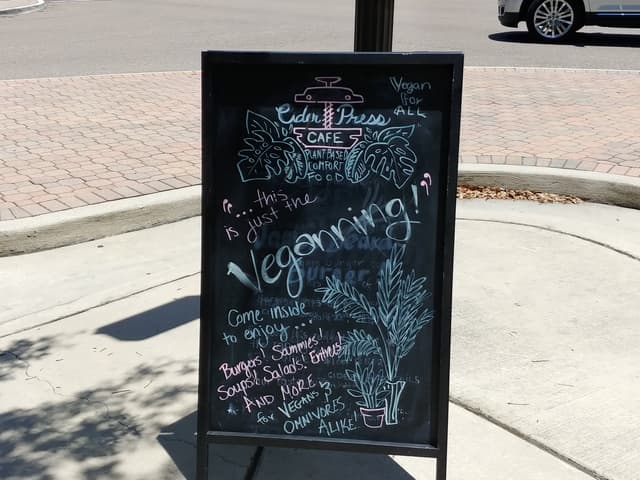 Vegan
for
ALL
Cider Press
CAFE
PLANT BASED
COMFORT
FOOD
"...this
is just the
Veganning!"
Come inside
to enjoy...
Burgers! Sammies!
Soups! Salads! Entrees!
AND MORE
for VEGANS &
OMNIVORES
ALIKE!